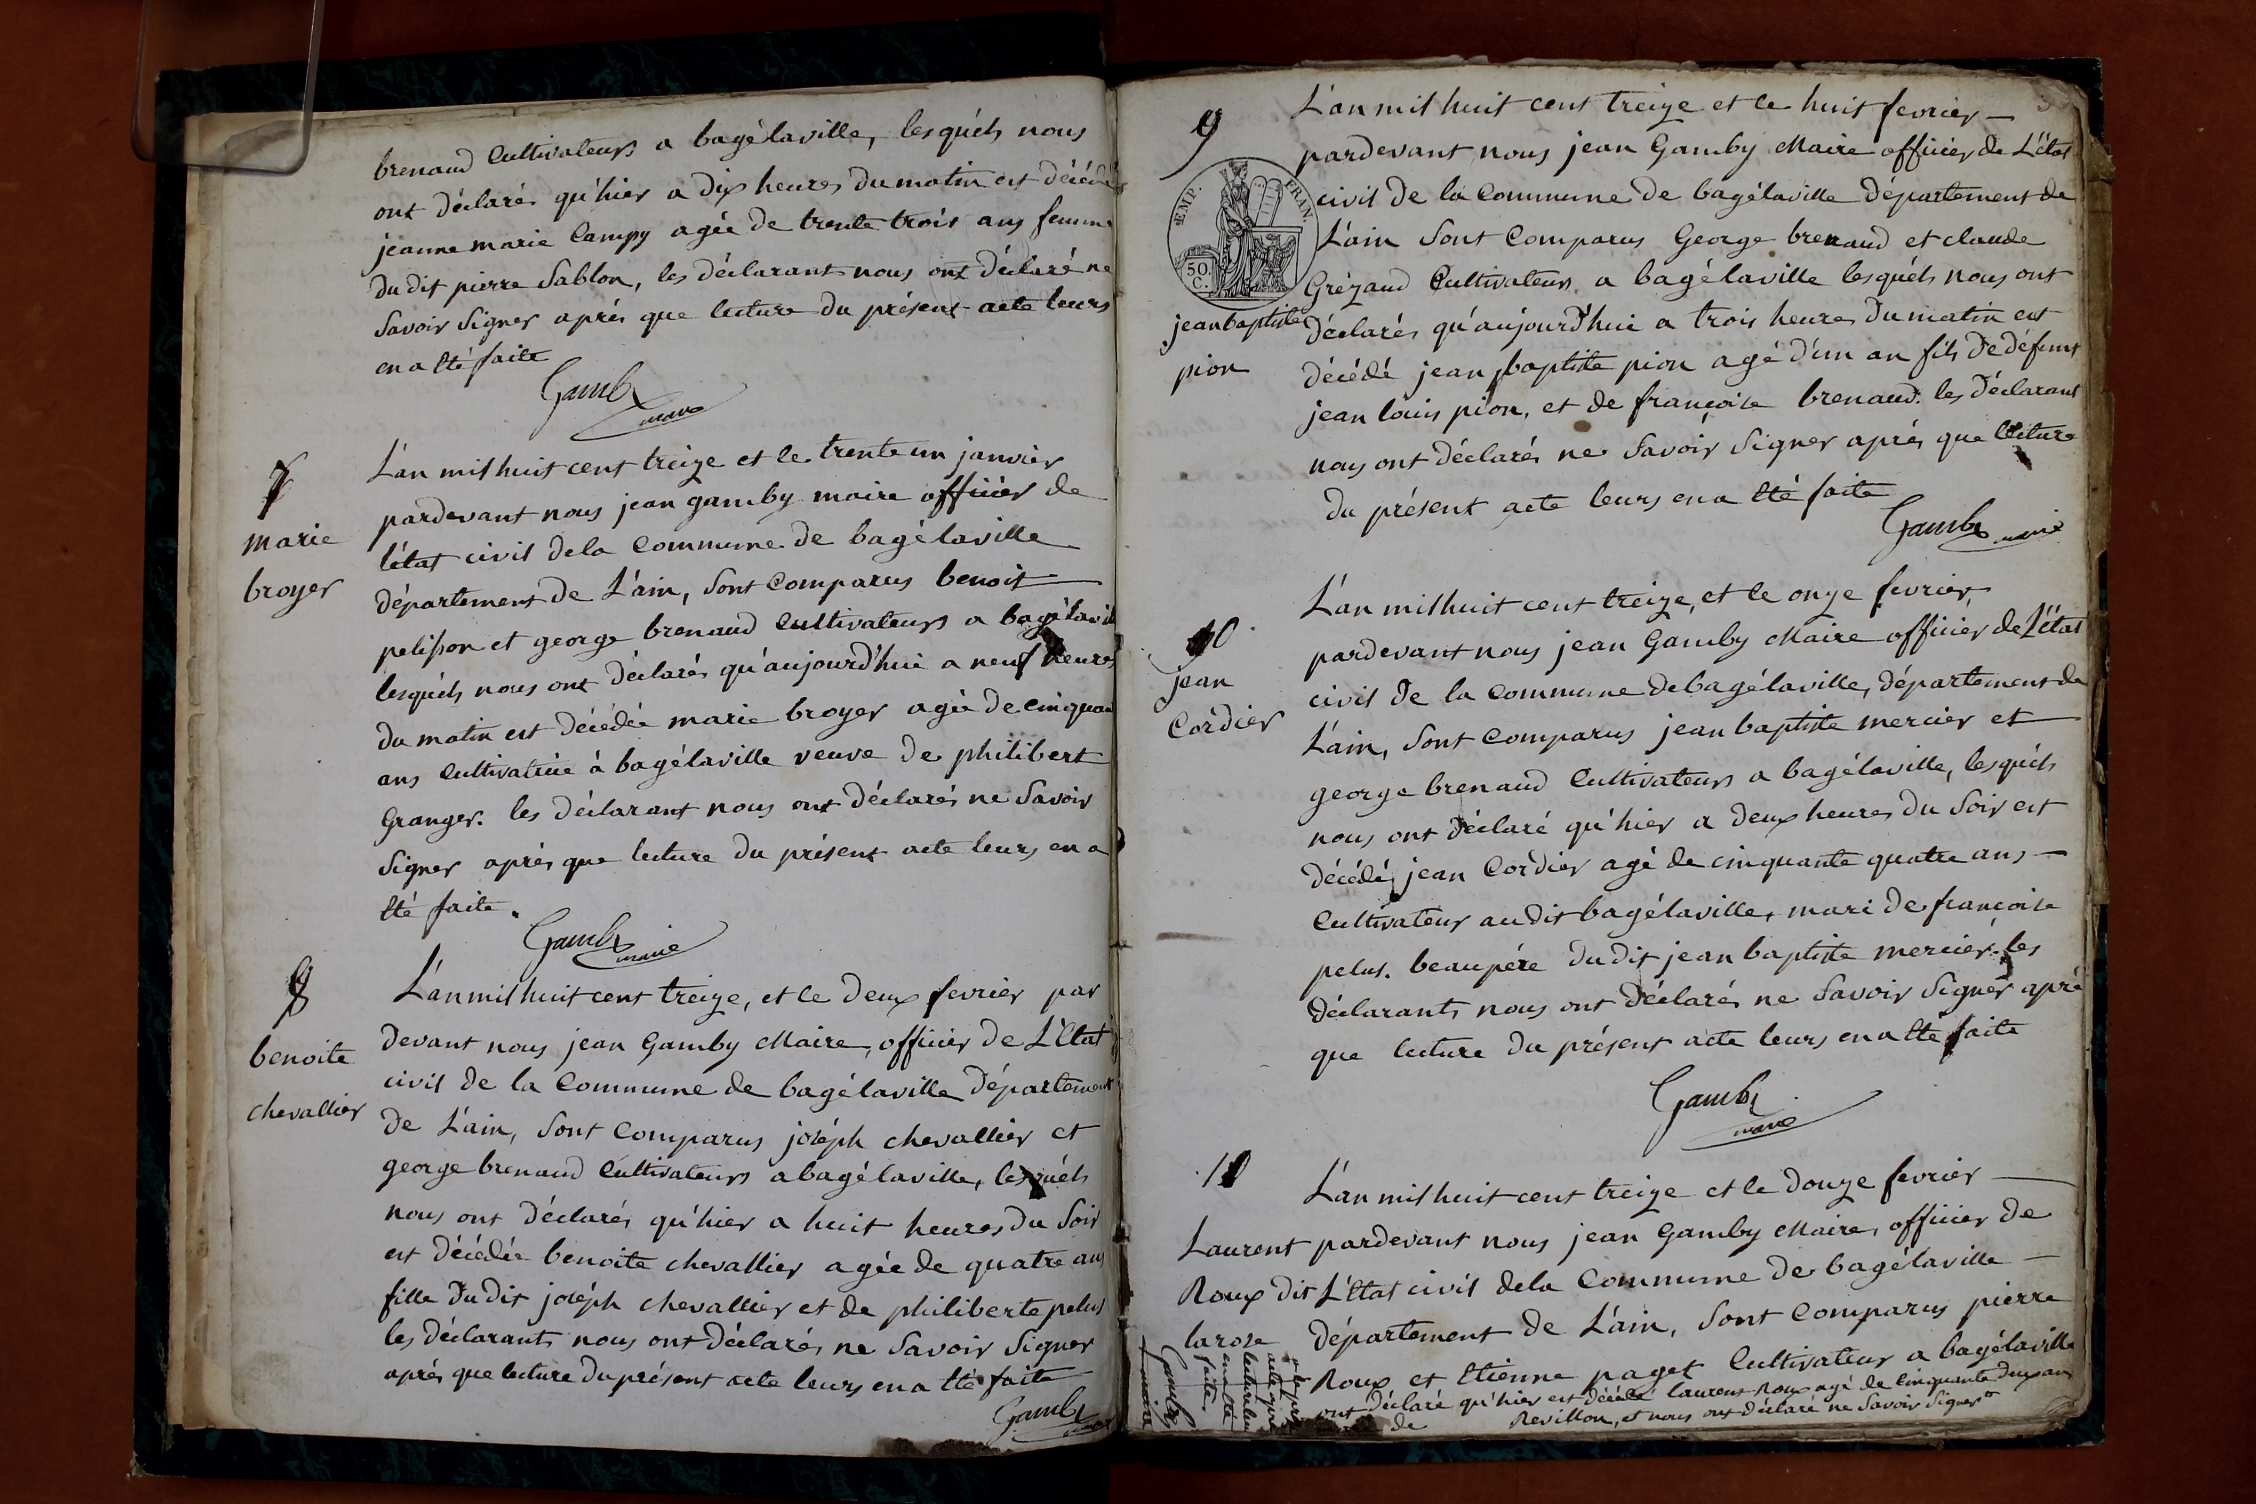 brenaud Cultivateurs a bagélaville, lesquéls nous
ont déclarés qu'hier a dix heures du matin est décédé
jeanne marie Campy agée de trente trois ans femme
du dit pierre Sablon, les déclarant nous ont déclaré ne
Savoir Signer aprés que lecture du présent acte leurs
en a été faite
Gamby
maire
7
marie
broyer
L'an mil huit cent treize et le trente un janvier
pardevant nous jean gamby maire officier de
l'état civil de la Commune de bagélaville
département de L'ain, Sont Comparus benoit
pelisson et george brenaud Cultivateurs a bagélaville
lesquéls nous ont déclarés qu'aujourd'hui a neuf heures
du matin est décédée marie broyer agée de cinquan
ans Cultivatrice à bagélaville veuve de philibert
Granger. les déclarant nous ont déclarés ne Savoir
Signer aprés que lecture du présent acte leurs en a
été faite.
Gamby
maire
8
benoite
chevallier
L'an mil huit cent treize, et le deux fevrier par
devant nous jean Gamby Maire, officier de L'État
civil de la Commune de bagélaville département
de L'ain, Sont Comparus joséph chevallier et
george brenaud Cultivateurs a bagélaville, lesquéls
nous ont déclarés qu'hier a huit heures du Soir
est décédée benoite chevallier agée de quatre ans
fille du dit joséph chevallier et de philiberte pelus
les déclarants nous ont déclarés ne Savoir Signer
aprés que lecture du présent acte leurs en a été faite
Gamby
maire
9
ÆMP. FRAN.
50.
C.
jean baptiste
pion
L'an mil huit cent treize et le huit fevrier
pardevant nous jean Gamby Maire officier de L'état
civil de la Commune de bagélaville département de
L'ain Sont Comparus George brenaud et claude
Grézaud Cultivateurs a bagélaville lesquéls nous ont
déclarés qu'aujourd'hui a trois heures du matin est
décédé jean baptiste pion agé d'un an fils de défunt
jean louis pion, et de françoise brenaud. les déclarant
nous ont déclarés ne Savoir Signer aprés que lecture
du présent acte leurs en a été faite
Gamby maire
10
jean
Cordier
L'an mil huit cent treize, et le onze fevrier
pardevant nous jean Gamby Maire officier de L'état
civil de la Commune de bagélaville, département de
L'ain, Sont Comparus jean baptiste mercier et
george brenaud Cultivateurs a bagélaville, lesquéls
nous ont déclaré qu'hier a deux heures du Soir est
décédé jean Cordier agé de cinquante quatre ans
Cultivateur audit bagélaville, mari de françoise
pelus. beaupére du dit jean baptiste mercier. les
déclarants nous ont déclarés ne Savoir Signer apré
que lecture du présent acte leurs en a été faite
Gamby
maire
11
Laurent
Roux dit
larose
L'an mil huit cent treize et le douze fevrier
pardevant nous jean Gamby Maire, officier de
L'État civil de la Commune de bagélaville
département de L'ain, Sont Comparus pierre
Roux et Etienne paget Cultivateur a bagélaville
ont déclaré qu'hier est décédé Laurent Roux agé de Cinquante deux ans
de Revillon, et nous ont déclaré ne Savoir Signer
lecture leur
en a été
faite
Gamby
maire